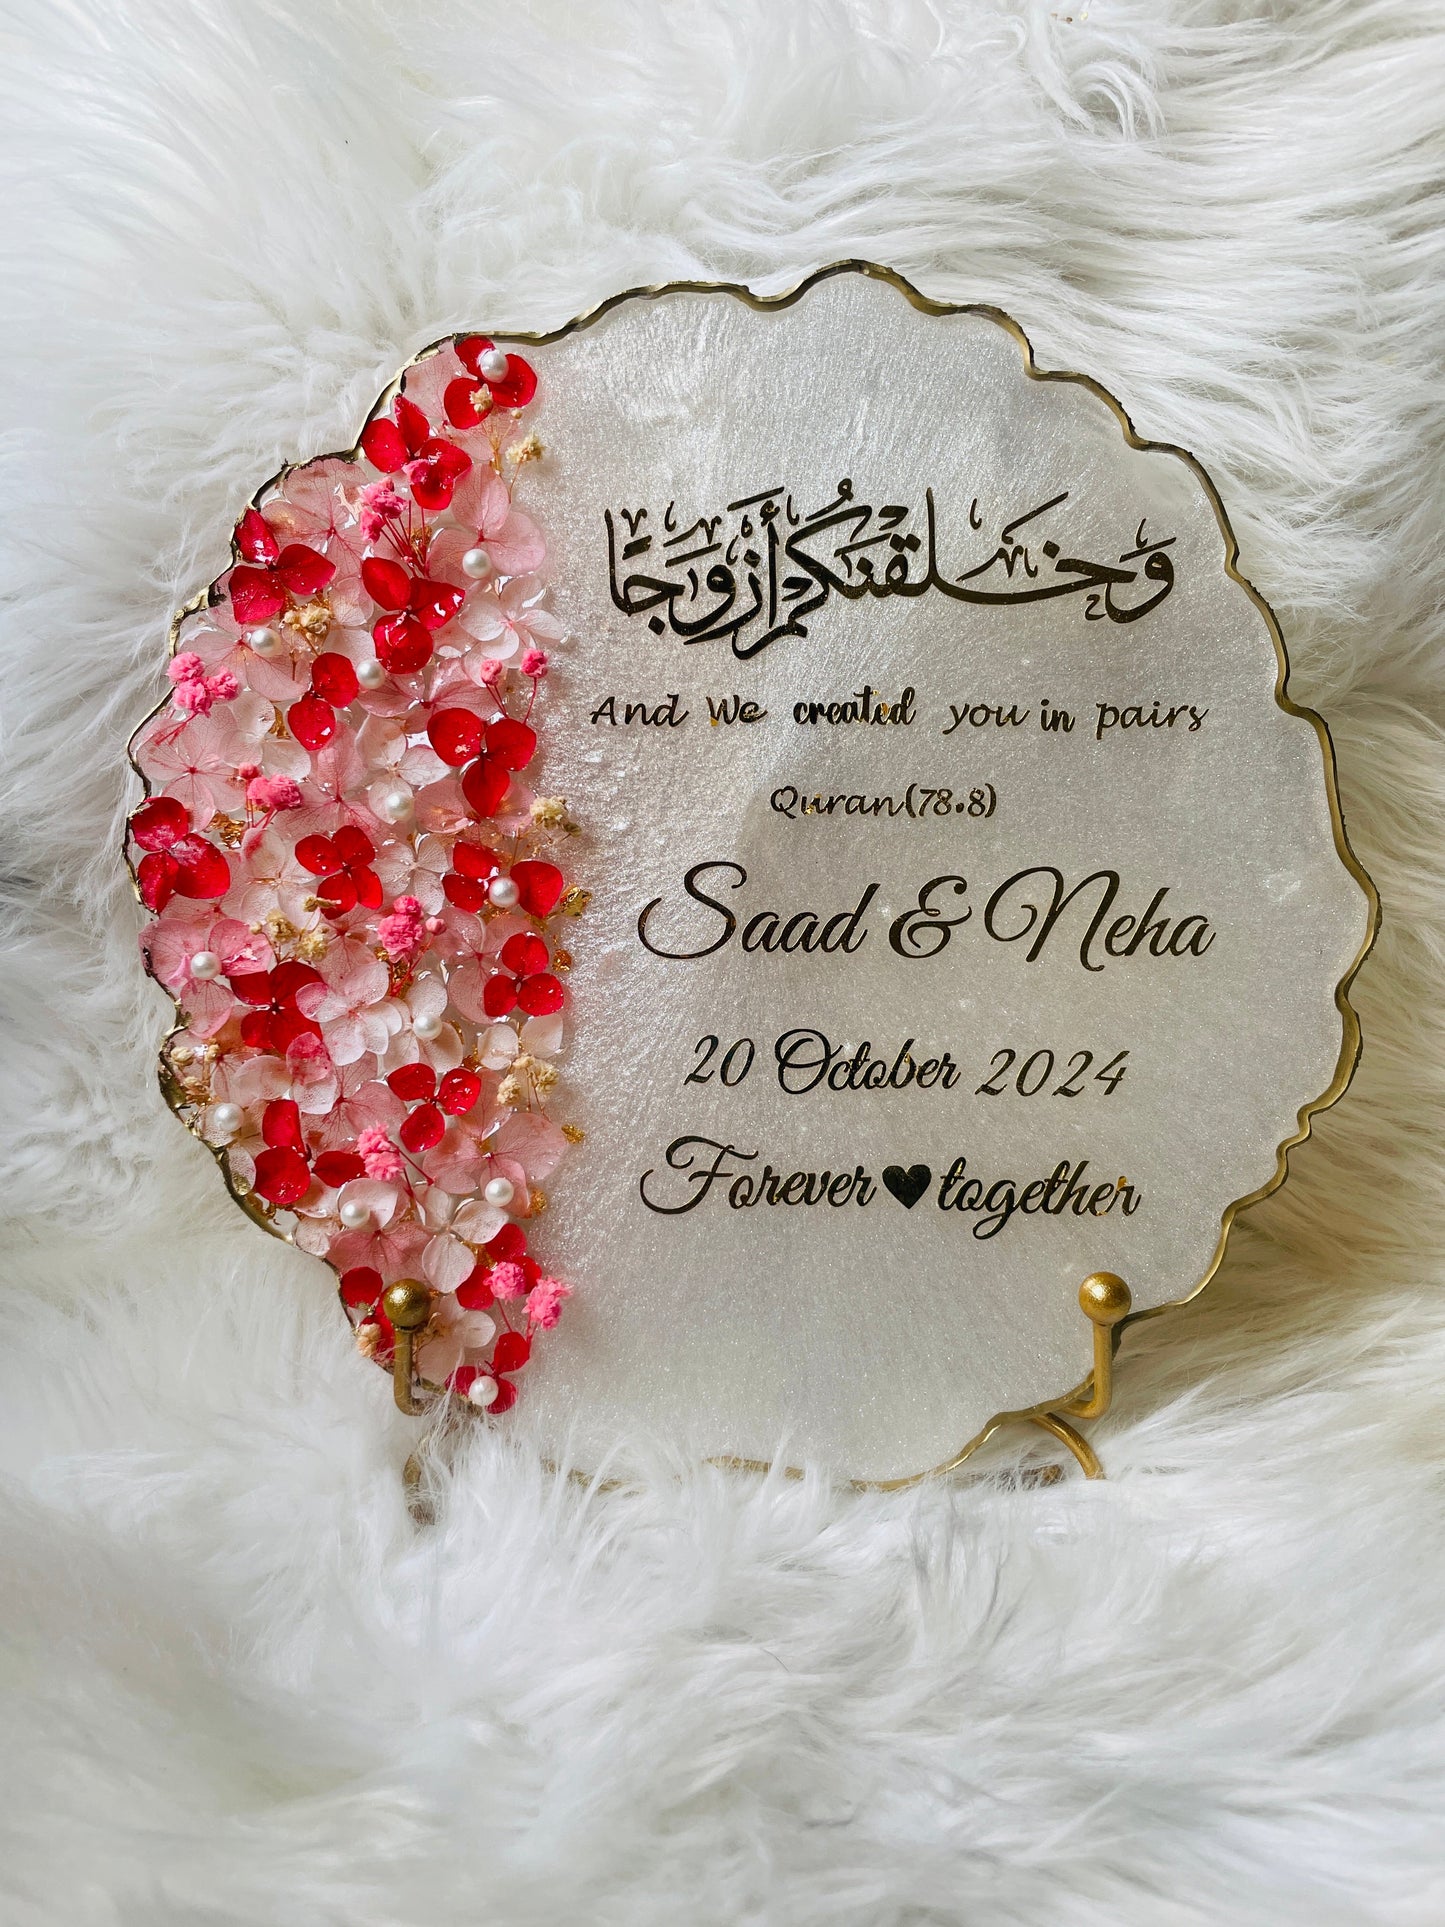 وَخَلَقْنَٰكُمْ أَزْوَٰجًا
And We created you in pairs
Quran(78.8)
Saad & Neha
20 October 2024
Forever♥together